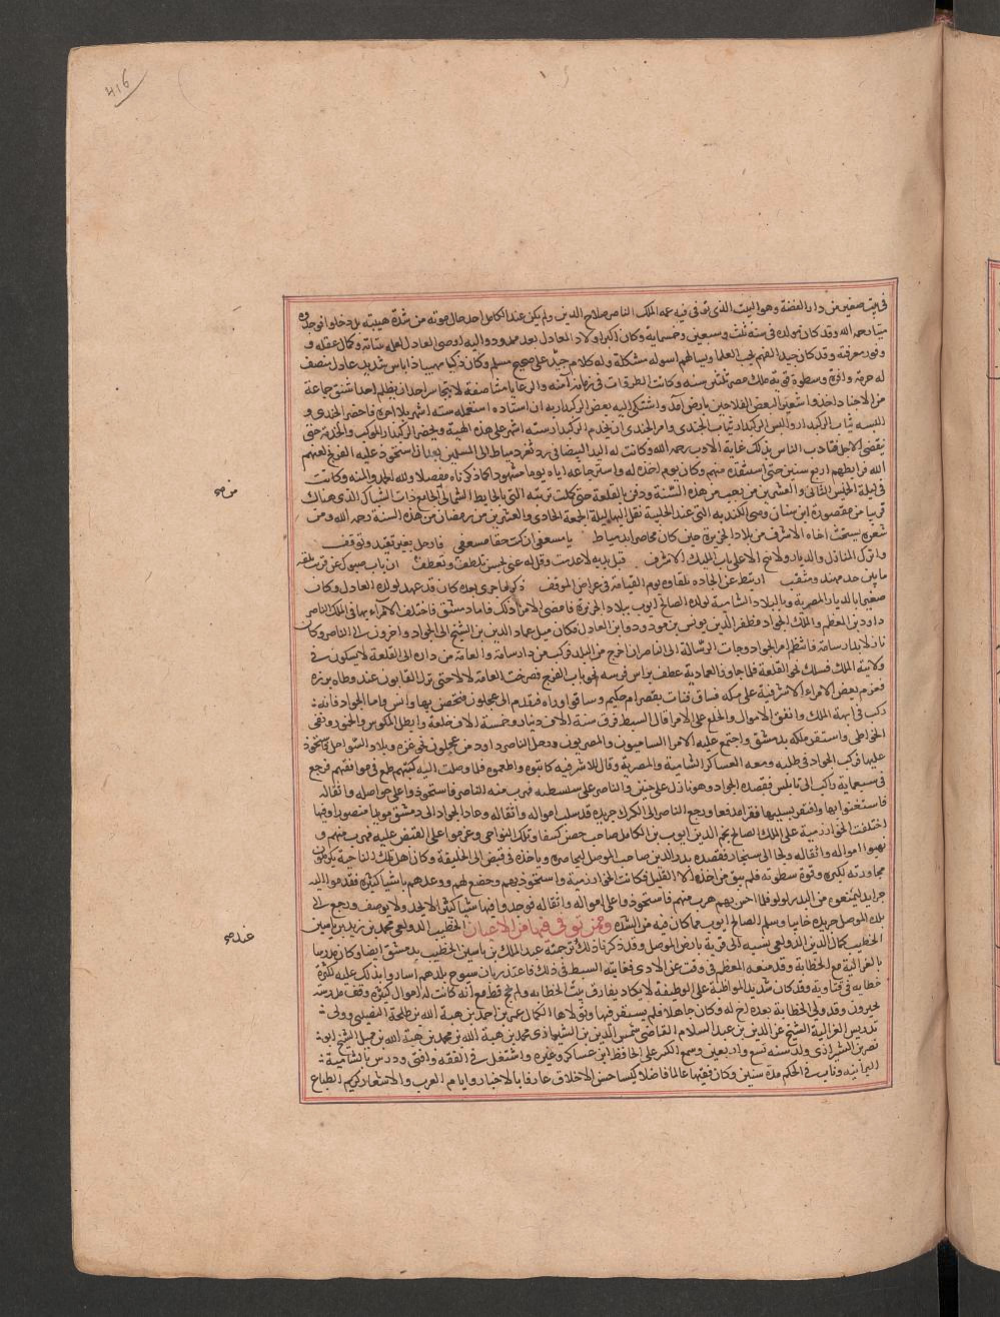 416
في بيت صغير من دار الفضة وهو البيت الذي توفي فيه عمه الملك الناصر صلاح الدين ولم يكن عند الكامل احد حال موته من شدة هيبته بل دخلوا فوجدوه
ميتا رحمه الله وقد كان مولده في سنة ثلث وسبعين وخمسماية وكان اكبر اولاد العادل بعد ممدود واليه اوصى العادل لعلمه بثباته وكمال عقله و
وفور معرفته وقد كان جيد الفهم يحب العلما ويسالهم اسولة مشكلة وله كلام جيد على صحيح مسلم وكان ذكيا مهيبا ذا باس شديد عادل منصف
له حرمة وافرة وسطوة قوية ملك مصر ثلثين سنة وكانت الطرقات في زمانه آمنة والرعايا متناصفة لا يتجاسر احد ان يظلم احدا شنق جماعة
من الاجناد اخذوا شعيرا لبعض الفلاحين بارض آمد واشتكى اليه بعض الركبدارية ان استاذه استعمله ستة اشهر بلا اجرة فاحضر الجندي و
البسه ثياب الركبدار والبس الركبدار ثياب الجندي وامر الجندي ان يخدم الركبدار ستة اشهر على هذه الهيئة ويحضر الركبدار الموكب والخدمة حتى
ينقضي الاجل فتادب الناس بذلك غاية الادب رحمه الله وكانت له اليد البيضا في رد ثغر دمياط الى المسلمين بعد ان استحوذ عليه الفرنج لعنهم
الله فرابطهم اربع سنين حتى استنقذه منهم وكان يوم اخذه له واسترجاعه اياه يوما مشهودا كما ذكرناه مفصلا ولله الحمد والمنة وكانت
في ليلة الخميس الثاني والعشرين من رجب من هذه السنة ودفن بالقلعة حتى كملت تربته التي بالحايط الشمالي الجامع ذات الشباك الذي هناك
قريبا من مقصورة ابن سنان وهي الكنديه التي عند الحلبية نقل اليها ليلة الجمعة الحادي والعشرين من رمضان من هذه السنة رحمه الله ومن
شعره يستحث اخاه الاشرف من بلاد الجزيرة حين كان محاصرا بدمياط يا مسعفي ان كنت حقا مسعفي فارحل بغير تقيد وتوقف
واترك المنازل والديار ولا تنخ الا على باب المليك الاشرف قبل يديه لا عدمت وقل له عني بحسن تلطف وتعطف ان يات صنوك عن قريب تلقه
ما بين حد مهند ومثقف او تبط عن انجاده بلقاؤه يوم القيامة في عراض الموقف ذكر ما جرى بعده كان قد عهد لولده العادل وكان
صغيرا بالديار المصرية وبالبلاد الشامية لولده الصالح ايوب ببلاد الجزيرة فامضى الامرا ذلك فاما دمشق فاختلف الامراء بها في الملك الناصر
داود بن المعظم والملك الجواد مظفر الدين يونس بن مودود بن العادل فكان ميل عماد الدين بن الشيخ الى الجواد واخرون الى الناصر وكان
نازلا بدار سامة فانتظم امر الجواد وجات الرسالة الى الناصر ان اخرج من البلد فركب من دار سامة والعامة من داره الى القلعة لا يشكون في
ولايته الملك فسلك نحو القلعة فلما جاوز العمادية عطف براس فرسه نحو باب الفرج فصرخت العامة لا لا لا حتى نزل القابون عند وطاه برزه
فعزم بعض الامراء الاشرفية على مسكه فساق فبات بقصر ام حكيم وساقوا وراه فتقدم الى عجلون فتحصن بها وامن واما الجواد فانه
ركب في ابهة الملك وانفق الاموال والخلع على الامرا قال السبط فرق ستة الاف دينار وخمسة الاف خلعة وابطل المكوس والخمور ونفى
الخواطي واستقر ملكه بدمشق واجتمع عليه الامرا الشاميون والمصريون ورحل الناصر داود من عجلون نحو غزه وبلاد السواحل فاستحوذ
عليها فركب الجواد في طلبه ومعه العساكر الشامية والمصرية وقال للاشرفيه كاتبوه واطمعوه فلما وصلت اليه كتبهم طمع في موافقتهم فرجع
في سبعماية راكب الى نابلس فقصده الجواد وهو نازل على جينين والناصر على سبسطيه فهرب منه الناصر فاستحوذوا على حواصله واثقاله
فاستغنوا بها وافتقر بسببها فقرا مدقعا ورجع الناصر الى الكرك جريدة قد سلب امواله واثقاله وعاد الجواد الى دمشق مويدا منصورا وفيها
اختلفت الخوارزمية على الملك الصالح نجم الدين ايوب بن الكامل صاحب حصن كيفا وتلك النواحي وعزموا على القبض عليه فهرب منهم و
نهبوا امواله واثقاله ولجا الى سنجار فقصده بدر الدين صاحب الموصل ليحاصره وياخذه في قفص الى الخليفة وكان اهل تلك الناحية يكرهون
مجاورته لكبره وقوة سطوته فلم يبق من اخذه الا القليل فكاتب الخوارزمية واستنجد بهم وخضع لهم ووعدهم باشيا كثيرة فقدموا اليه
جرايد ليمنعوه من البدر لولو فلما احس بهم هرب منهم فاستحوذوا على امواله واثقاله فوجدوا فيها شيا كثيرا لا يحد ولا يوصف ورجع الى
بلده الموصل جريدة خايبا وسلم الصالح ايوب مما كان فيه من الشدة وممن توفي فيها من الاعيان الخطيب الدولعي محمد بن زيد بن ياسين
الخطيب كمال الدين الدولعي نسبة الى قرية بارض الموصل وقد ذكرنا ذلك في ترجمة عمه عبد الملك بن ياسين الخطيب بدمشق ايضا وكان مدرسا
بالغزالية مع الخطابة وقد منعه المعظم في وقت عن الافتا فعاتبه السبط في ذلك فاعتذر بان شيوخ بلدهم اشاروا بذلك عليه لكثرة
خطايه في فتاويه وقد كان شديد المواظبة على الوظيفة لا يكاد يفارق بيت الخطابه ولم يحج قط مع انه كانت له اموال كثيرة وقف مدرسة
بجيرون وقد ولي الخطابة بعده اخ له وكان جاهلا فلم يستقر فيها وتولاها الكمال عمر بن احمد بن هبة الله بن طلحة النصيبي وولى
تدريس الغزالية الشيخ عز الدين بن عبد السلام القاضي شمس الدين بن الشيرازي محمد بن هبة الله بن محمد بن هبة الله بن جميل الشيخ ابو
نصر بن الشيرازي ولد سنة تسع واربعين وسمع الكثير على الحافظ ابن عساكر وغيره واشتغل في الفقه وافتى ودرس بالشامية
البرانية وناب في الحكم مدة سنين وكان فقيها عالما فاضلا كيسا حسن الاخلاق عارفا بالاخبار وايام العرب والاشعار كريم الطباع